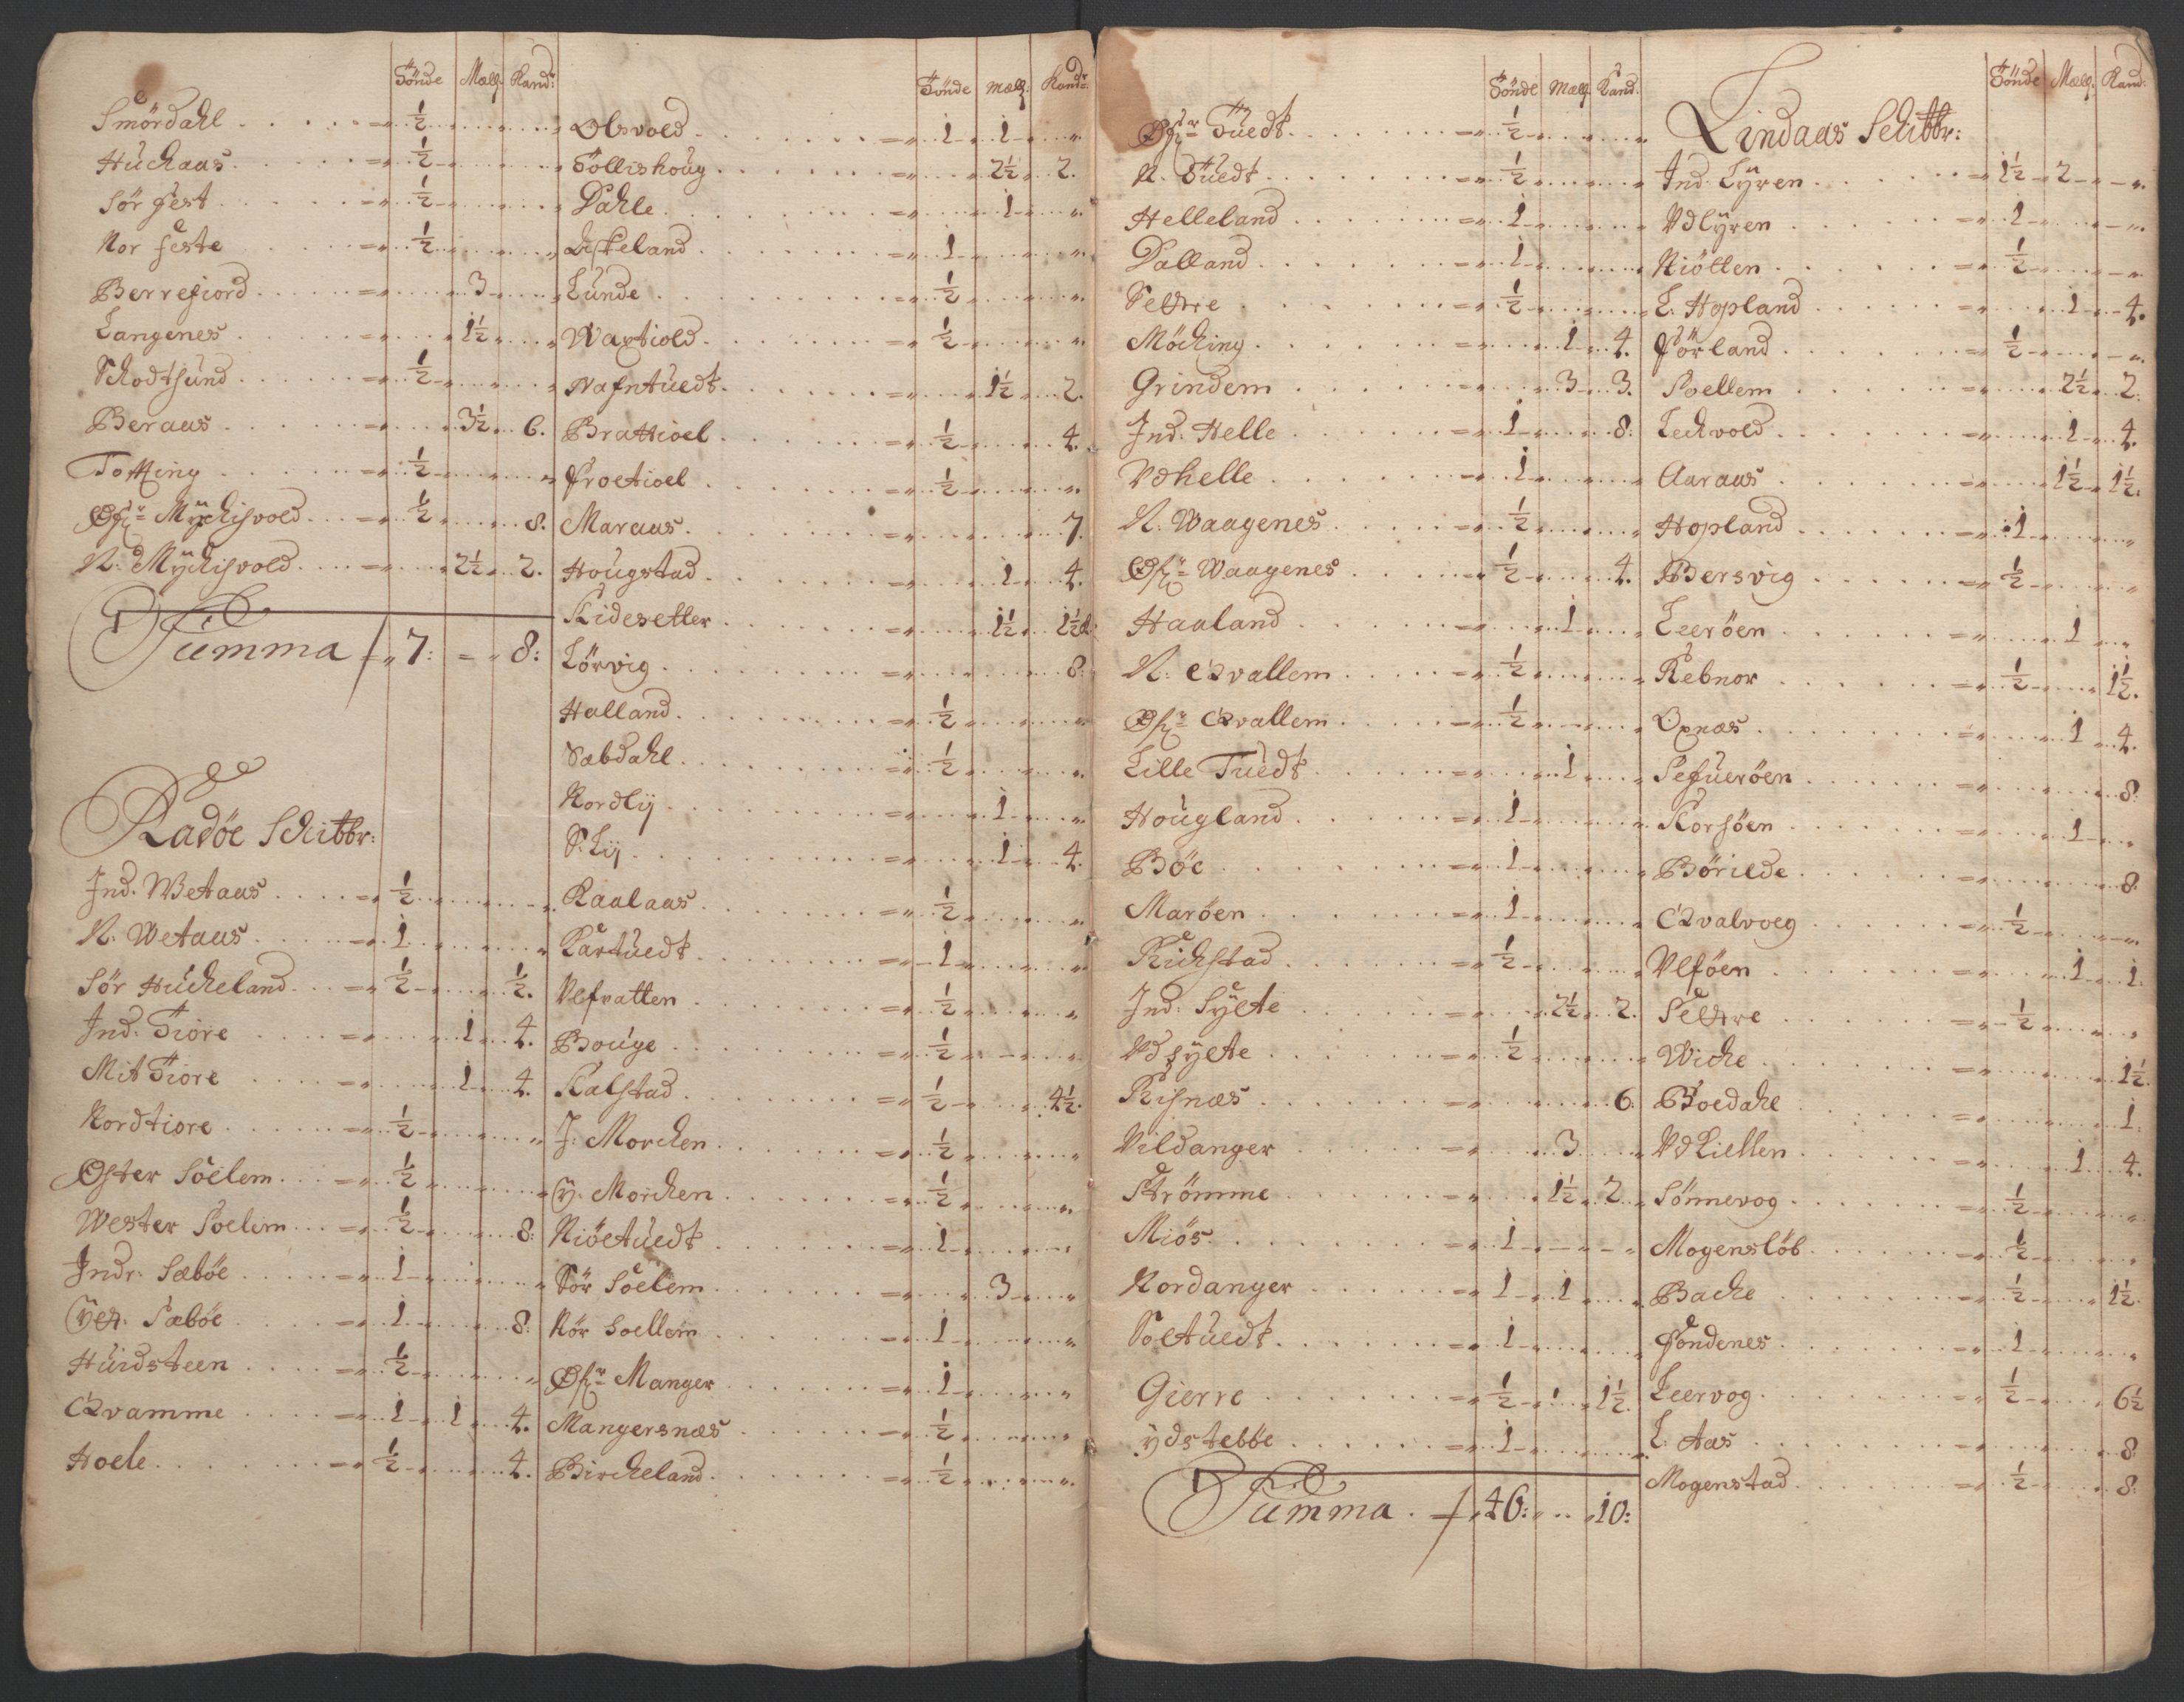 Tönde Mæll: Kand:
Smördahl ½
Huchaas ½
Sör fest ½
Nor feste ½
Berrefiord 3
Langenes 1½
Schodtsund ½
Beraas 3½ 6.
Totting ½
Øfr Myckisvold ½ 8.
N: Myckisvold 2½ 2.
Summa 7: 8:
Radöe Schibbr:
Ind. Wetaas ½
N. Wetaas 1
Sör Hucheland ½ ½.
Ind. Tiore 1 4.
Mit Tiore 1 4.
Nordtiore ½
Øster Soelem ½
Wester Soelem ½ 8:
Indr: Sæböe 1
Yet: Sæböe 1 8:
Huidsteen ½
Qvamme 1 1 4.
Hoele ½ 4.
Tönde Mæll: Kand:
Olsvold 1 1
Tollishoug 2½ 2.
Dahle 1
Eskeland 1
Lunde ½
Waxtiold ½
Nafntuedt 1½ 2.
Brattioel ½ 4.
Froetioel ½
Maraas 7.
Hougstad 1 4.
Kidesetter 1½ 1½
Lörvig 8:
Halland ½
Sæbdahl ½
Nordlij 1
S: Lij 1 4.
Raalaas ½
Kartuedt 1
Ulfvatten ½
Bouge ½
Kalstad ½ 4½.
I: Morchen ½
Y: Morchen ½
Niöetuedt 1
Sör Soelem 3
Nör Soellem 1
Øfr Manger 1
Mangersnæs ½
Bircheland ½
Tönde Mæll Kand:
Øfr Tuedt ½
N. Tuedt ½
Helleland 1
Dalland 1
Seltre ½
Möching 1 4.
Grindem 3 3.
Ind. Helle 1 8:
Vdhelle 1
N. Waagenes ½
Øfr Waagenes ½ 4.
Haaland 1
N: Qvallem ½
Øfr Qvallem ½
Lille Tuedt 1
Hougland 1
Böe 1
Maröen 1
Richstad ½
Ind: Sylte 2½ 2.
Vdsylte ½
Risnæs 6.
Vildanger 3
Strömme 1½ 2
Miös 1
Nordanger 1 1
Soltuedt 1
Gierre ½ 1½.
ydsteböe 1
Summa 46: 10:
Tönde Mæll: Kand:
Lindaas Schibbr:
Ind. Lyren 1½ 2
Vdlyren 1
Niötten ½
L. Hopland 1 4.
Förland ½
Soellem 2½ 2.
Lechvold 1 4.
Aaraas 1½ 1½.
Hopland 1
Bersvig ½
Leeröen 1
Rebnor ½ 1½.
Oxnæs 1 4.
Sefueröen 8:
Korsöen 1
Börilde 8.
Qvalvoeg ½
Ulföen 1 1.
Seltre ½
Wiche 1½.
Boedahl 1:
Vdkiellen 1 4.
Sönnevog ½
Mogenslöb ½
Bache ½ 1½.
Fondenes 1
Leervog ½ 6½
L: Aas 8:
Mogenstad ½ 8: